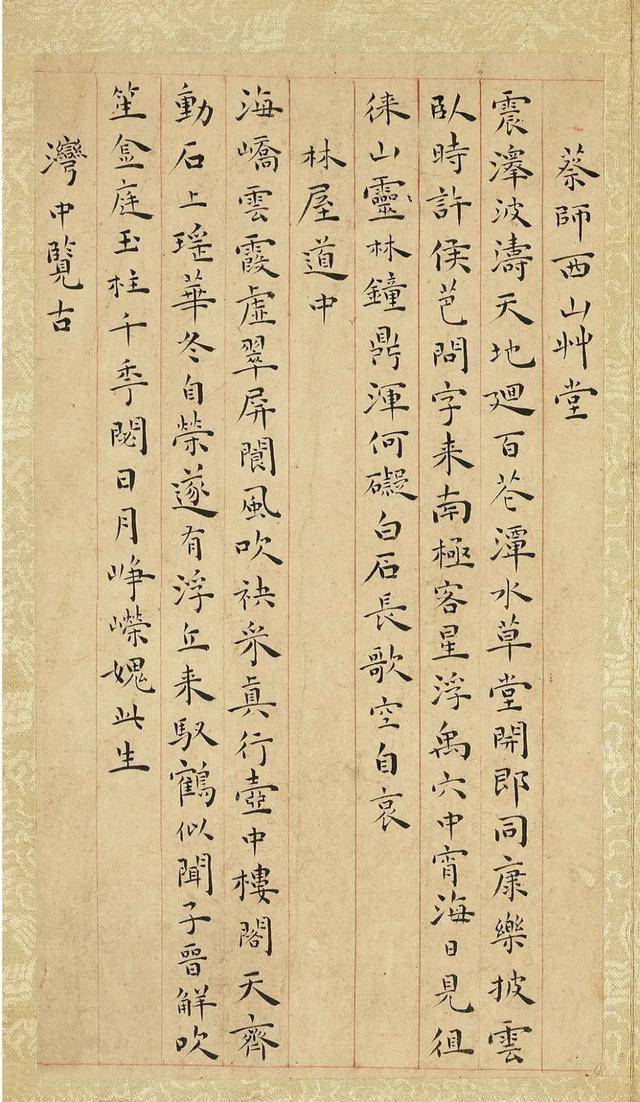 蔡師西山艸堂
震澤波濤天地廻百花潭水草堂開即同康樂披雲
臥時許侯芭問字来南極客星浮禹穴中宵海日見徂
徠山靈林鐘鼎渾何礙白石長歌空自哀
林屋道中
海嶠雲霞虛翠屏閬風吹袂采真行壺中樓閣天齊
動石上瑤華冬自榮遂有浮丘来馭鶴似聞子晉解吹
笙金庭玉柱千季閟日月崢嶸媿此生
灣中覽古